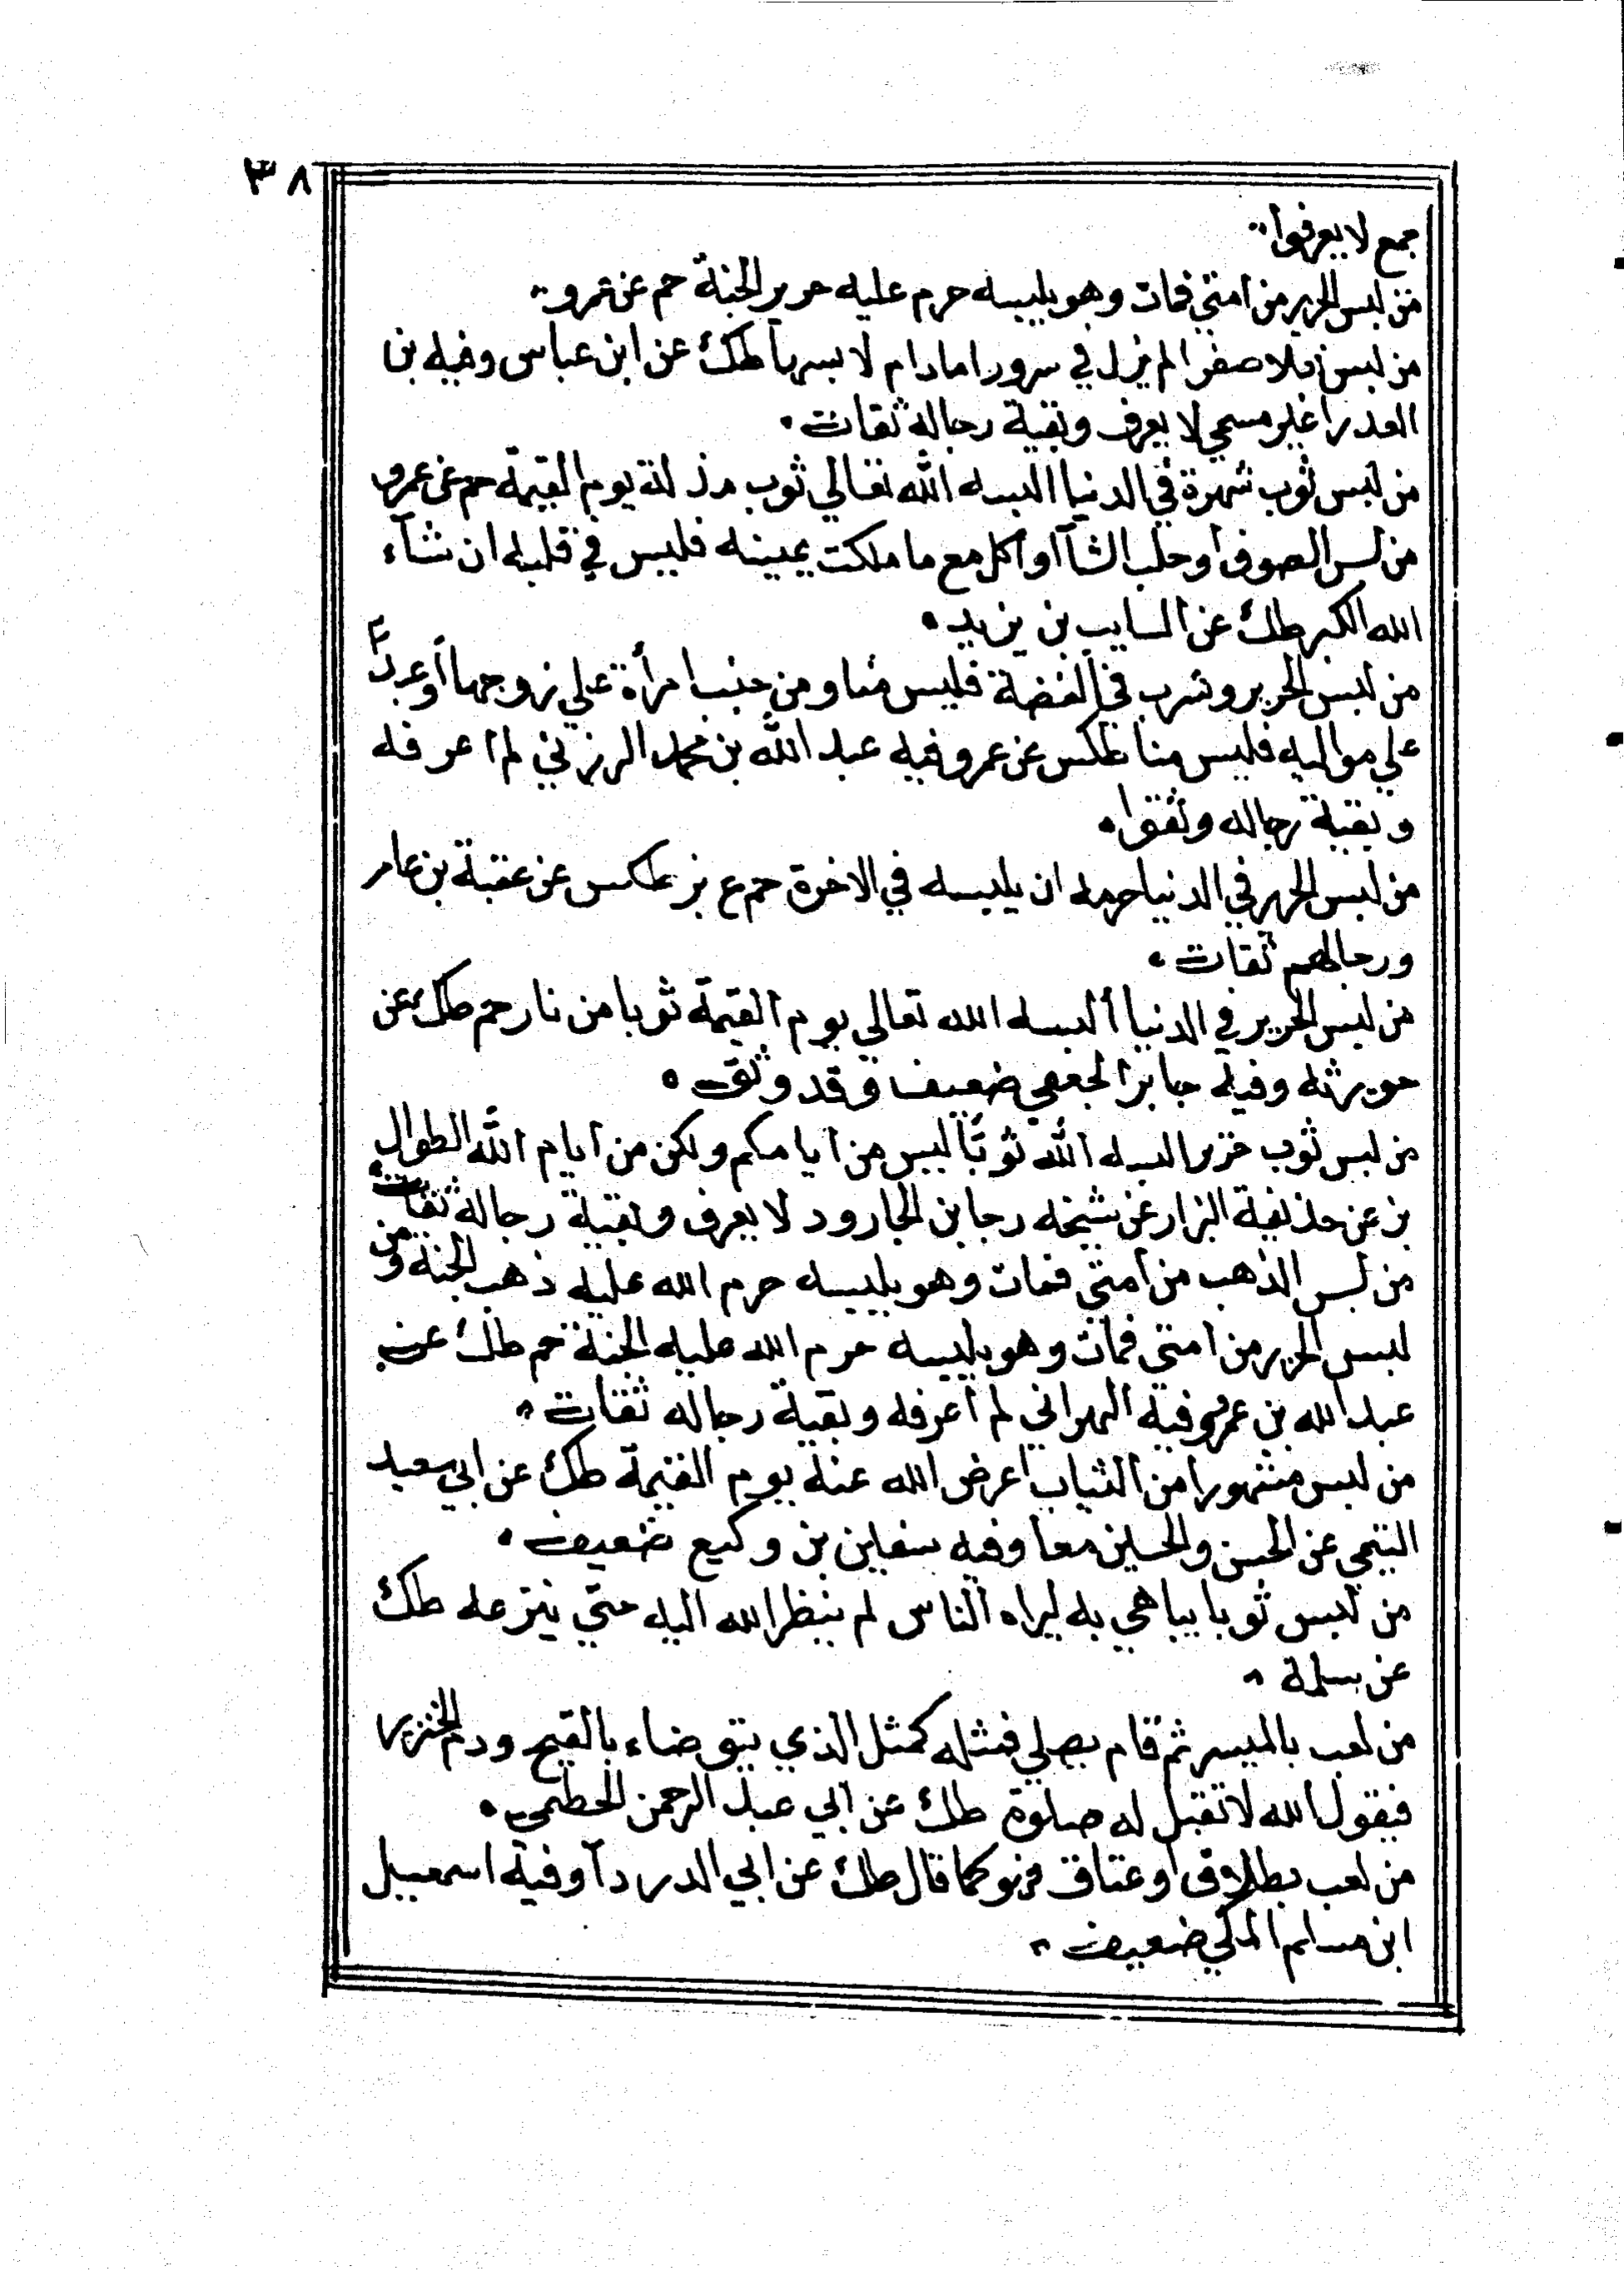 ٣٨
جمع لا يعرفوا
من لبس الحرير من امتي فمات وهو يلبسه حرم عليه حرير الجنة حم عن عمرو
من لبس نعلا صفرا لم يزل في سرور ما دام لابسها طك عن ابن عباس وفيه بن
العدرا غير مسمي لا يعرف وبقية رجاله ثقات
من لبس ثوب شهرة في الدنيا البسه الله تعالي ثوب مذلة يوم القيمة حم عن عمرو
من لبس الصوف أو حلب الشآ أو أكل مع ما ملكت يمينه فليس في قلبه ان شآء
الله الكبر طك عن السايب بن يزيد
من لبس الحرير وشرب في الفضة فليس منا ومن خبب امرأة علي زوجها أو عبدا
علي مواليه فليس منا طكس عن عمرو وفيه عبد الله بن محمد الرزني لم اعرفه
وبقية رجاله وثقوا
من لبس الحرير في الدنيا حرمه ان يلبسه في الاخرة حم ع بز طكس عن عقبة بن عامر
ورجالهم ثقات
من لبس الحرير في الدنيا ألبسه الله تعالي يوم القيمة ثوبا من نار حم طك عن
جويرثه وفيه جابر الجعفي ضعيف وقد وثق
من لبس ثوب حرير البسه الله ثوبًا ليس من أيامكم ولكن من أيام الله الطوال
بز عن حذيفة البزار عن شيخه رجا بن الجارود لا يعرف وبقية رجاله ثقات
من لبس الذهب من أمتي فمات وهو يلبسه حرم الله عليه ذهب الجنه ومن
لبس الحرير من امتي فمات وهو يلبسه حرم الله عليه الجنة حم طك عن
عبد الله بن عمرو وفيه المهراني لم أعرفه وبقية رجاله ثقات
من لبس مشهورا من الثياب أعرض الله عنه يوم القيمة طك عن ابي سعيد
التيمي عن الحسن والحسين معا وفيه سفين بن وكيع ضعيف
من لبس ثوبا يباهي به ليراه الناس لم ينظر الله اليه حتي ينزعه طك
عن سلمة
من لعب بالميسر ثم قام يصلي فمثله كمثل الذي يتوضاء بالقيح ودم الخنزير
فيقول الله لا تقبل له صلوة طك عن ابي عبد الرحمن الخطمي
من لعب بطلاق أو عتاق فهو كما قال طك عن ابي الدردآ وفيه اسمعيل
ابن مسلم المكي ضعيف